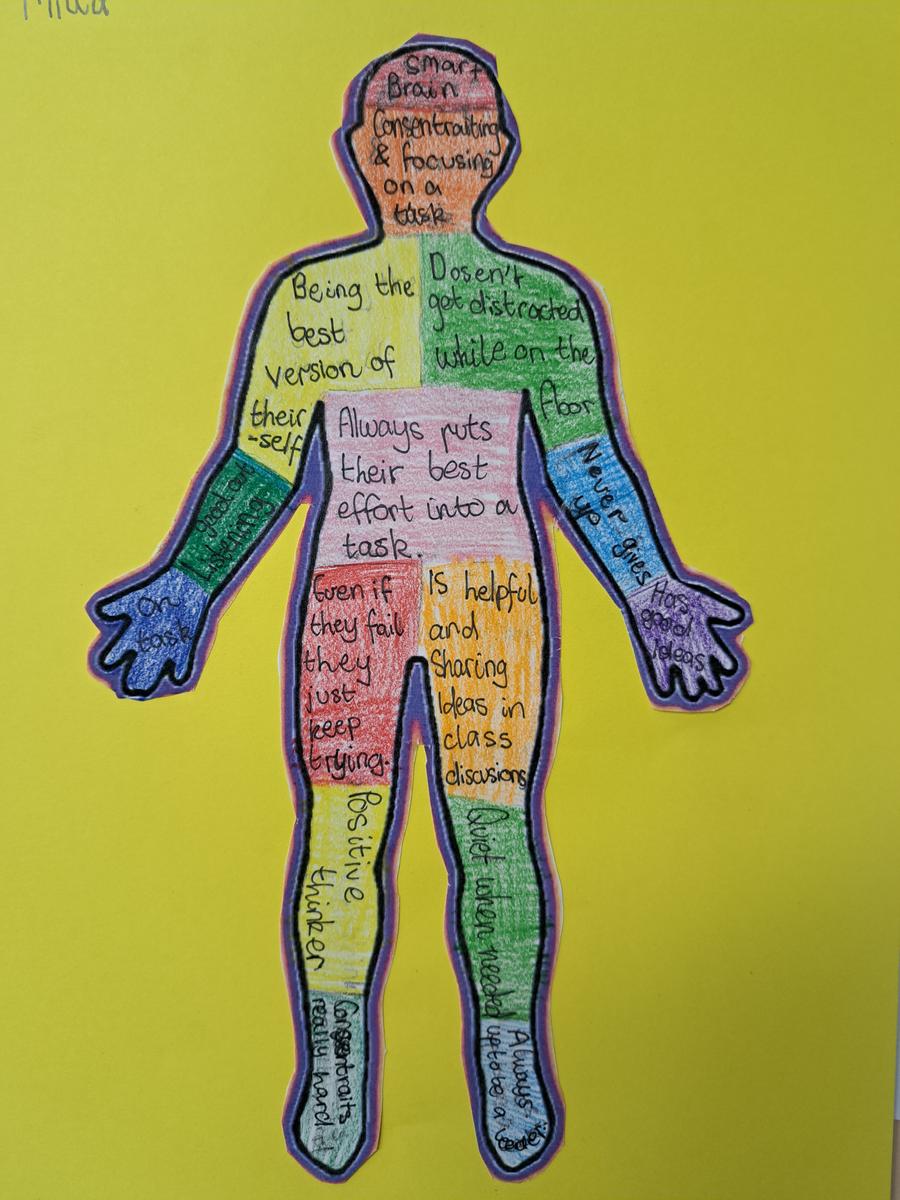 Smart
Brain
Consentraiting
& focusing
on a
task
Being the
best
version of
their
-self
Dosen't
get distracted
while on the
floor
Always puts
their best
effort into a
task.
good at
listening
Never gives
up
on
task
Has
good
ideas
Even if
they fail
they
just
keep
trying.
Is helpful
and
Sharing
Ideas in
class
discusions
Positive
thinker
Quiet when needed
Consentraits
really hard
Always
up to be a